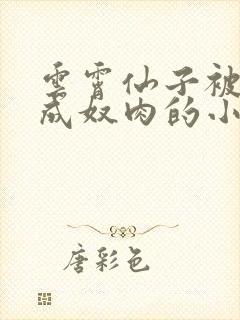 雲霄仙子被
成奴肉的小
唐彩色